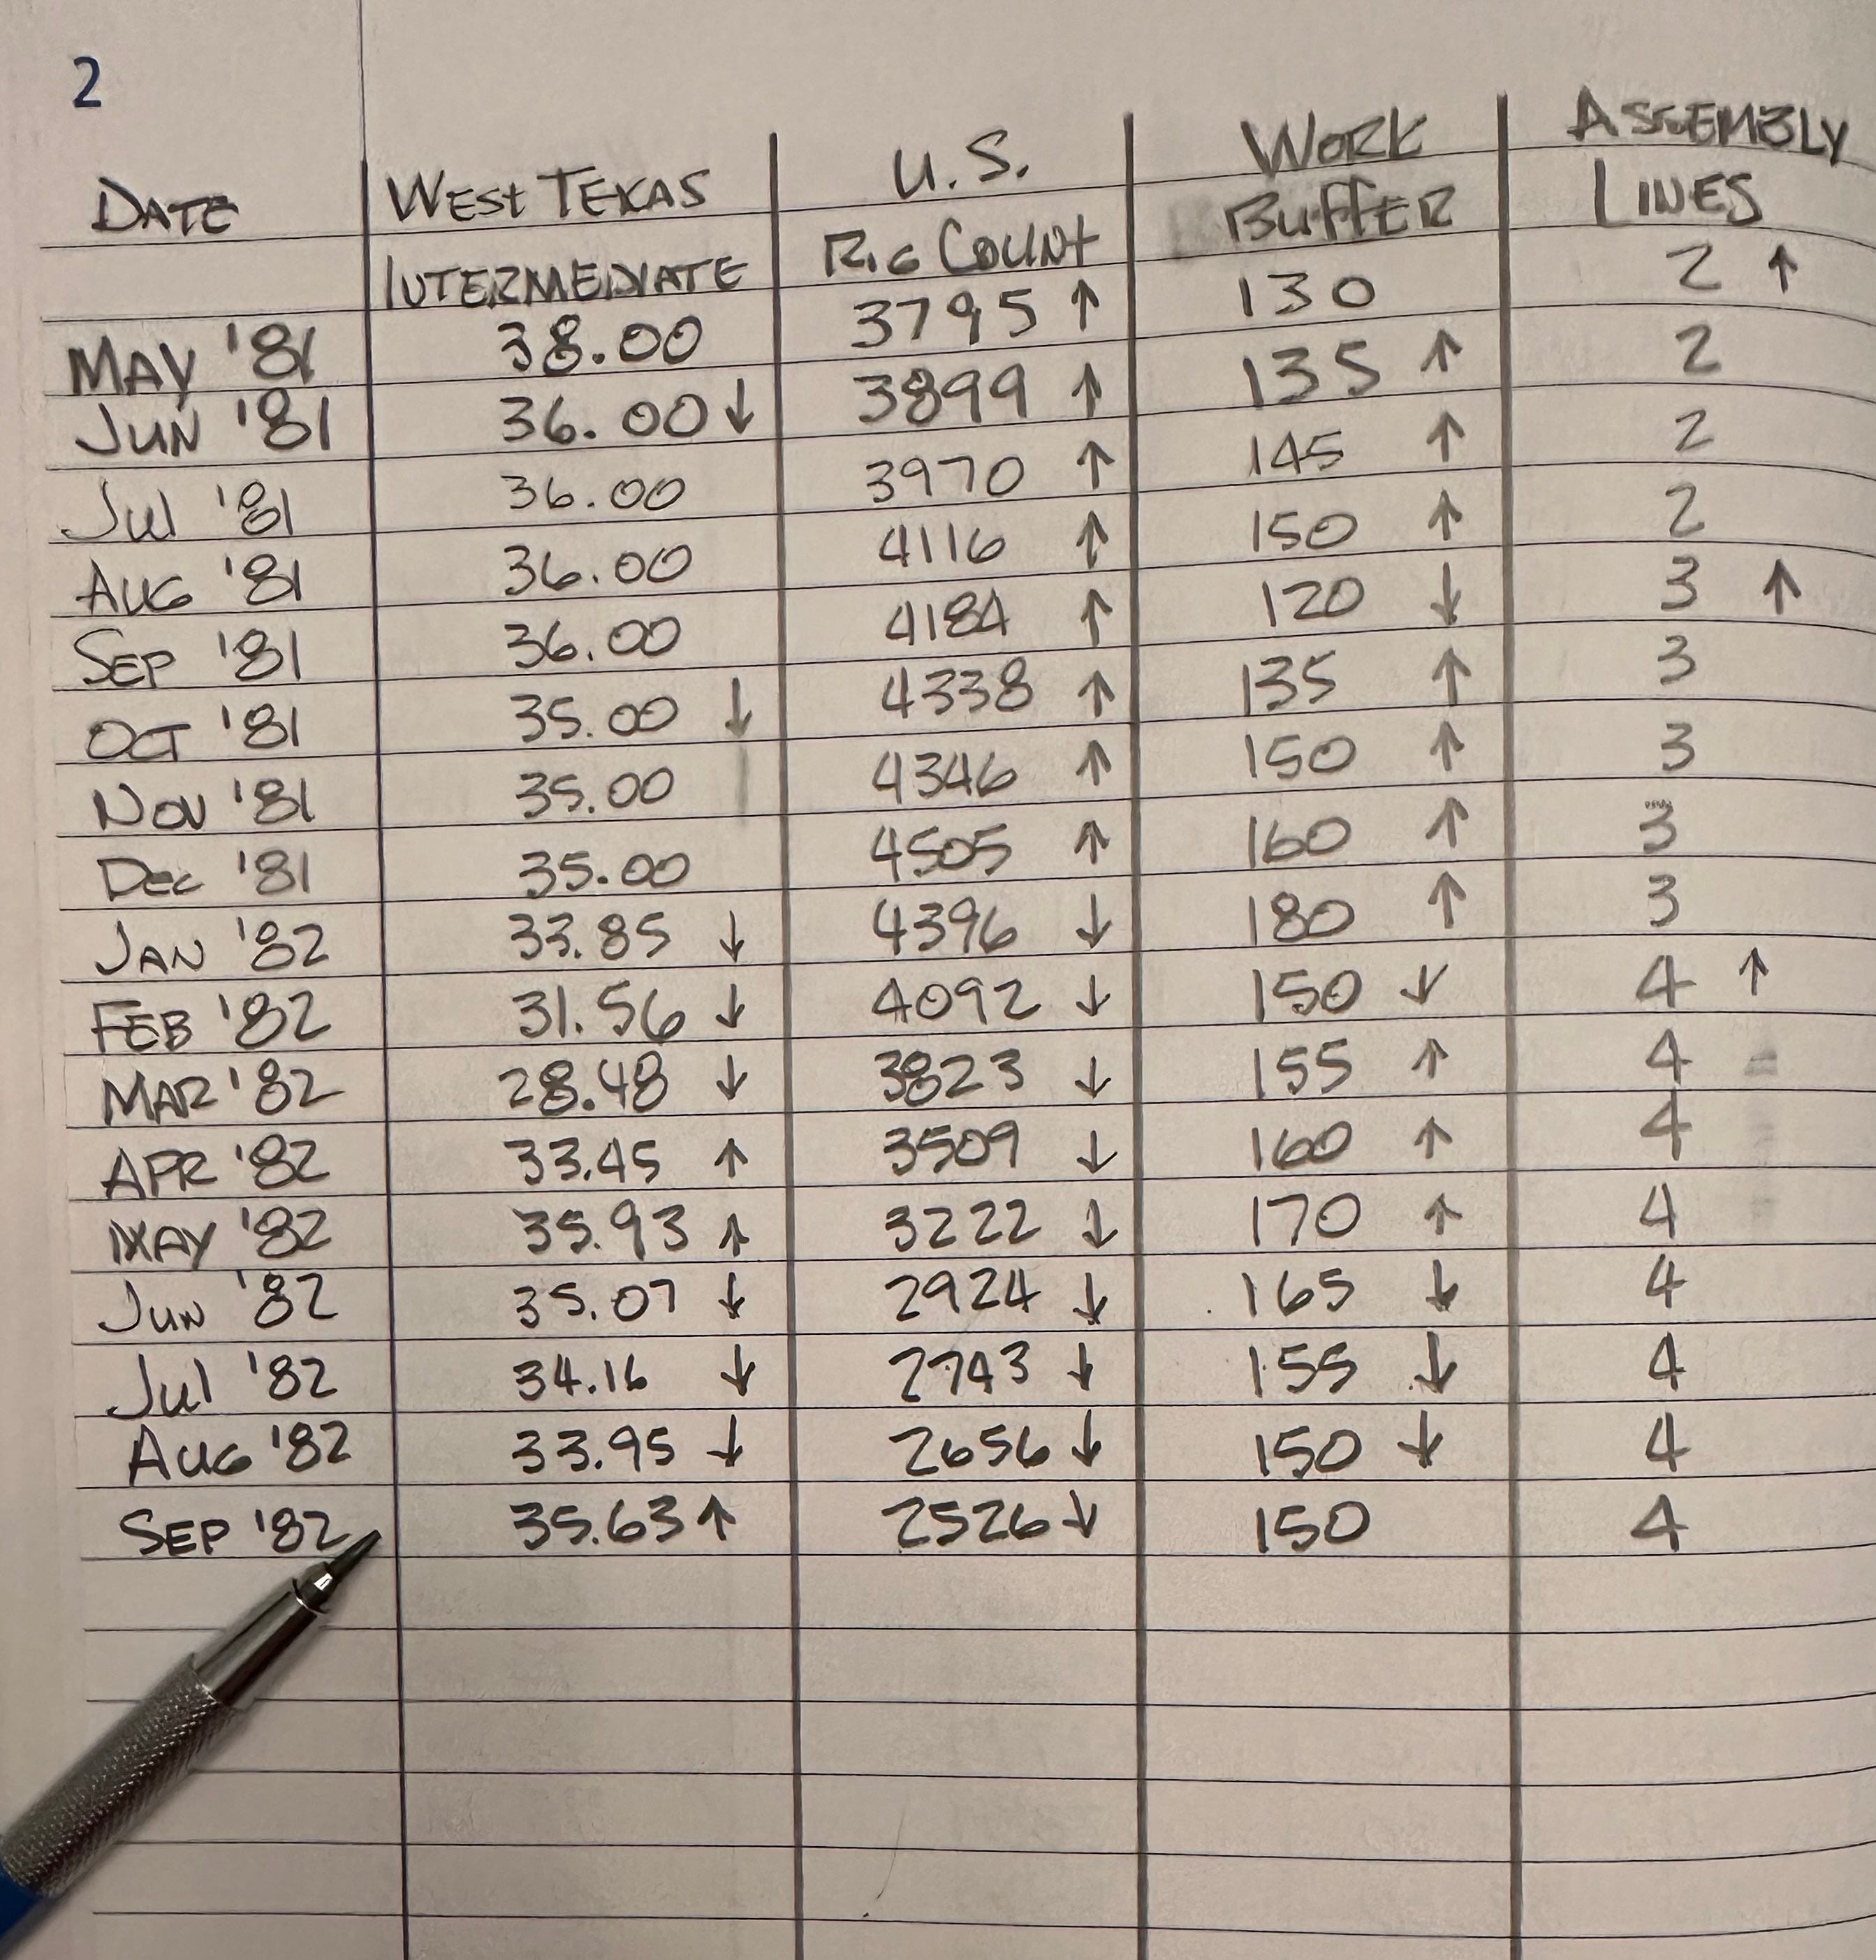 2
DATE WEST TEXAS INTERMEDIATE U.S. RIG COUNT WORK BUFFER ASSEMBLY LINES
MAY '81 38.00 3795 ↑ 130 2 ↑
JUN '81 36.00 ↓ 3899 ↑ 135 ↑ 2
Jul '81 36.00 3970 ↑ 145 ↑ 2
AUG '81 36.00 4116 ↑ 150 ↑ 2
SEP '81 36.00 4184 ↑ 120 ↓ 3 ↑
OCT '81 35.00 ↓ 4338 ↑ 135 ↑ 3
NOV '81 35.00 4346 ↑ 150 ↑ 3
DEC '81 35.00 4505 ↑ 160 ↑ 3
JAN '82 33.85 ↓ 4396 ↓ 180 ↑ 3
FEB '82 31.56 ↓ 4092 ↓ 150 ↓ 4 ↑
MAR '82 28.48 ↓ 3823 ↓ 155 ↑ 4
APR '82 33.45 ↑ 3509 ↓ 160 ↑ 4
MAY '82 35.93 ↑ 3222 ↓ 170 ↑ 4
JUN '82 35.07 ↓ 2924 ↓ 165 ↓ 4
Jul '82 34.16 ↓ 2743 ↓ 155 ↓ 4
AUG '82 33.95 ↓ 2656 ↓ 150 ↓ 4
SEP '82 35.63 ↑ 2526 ↓ 150 4